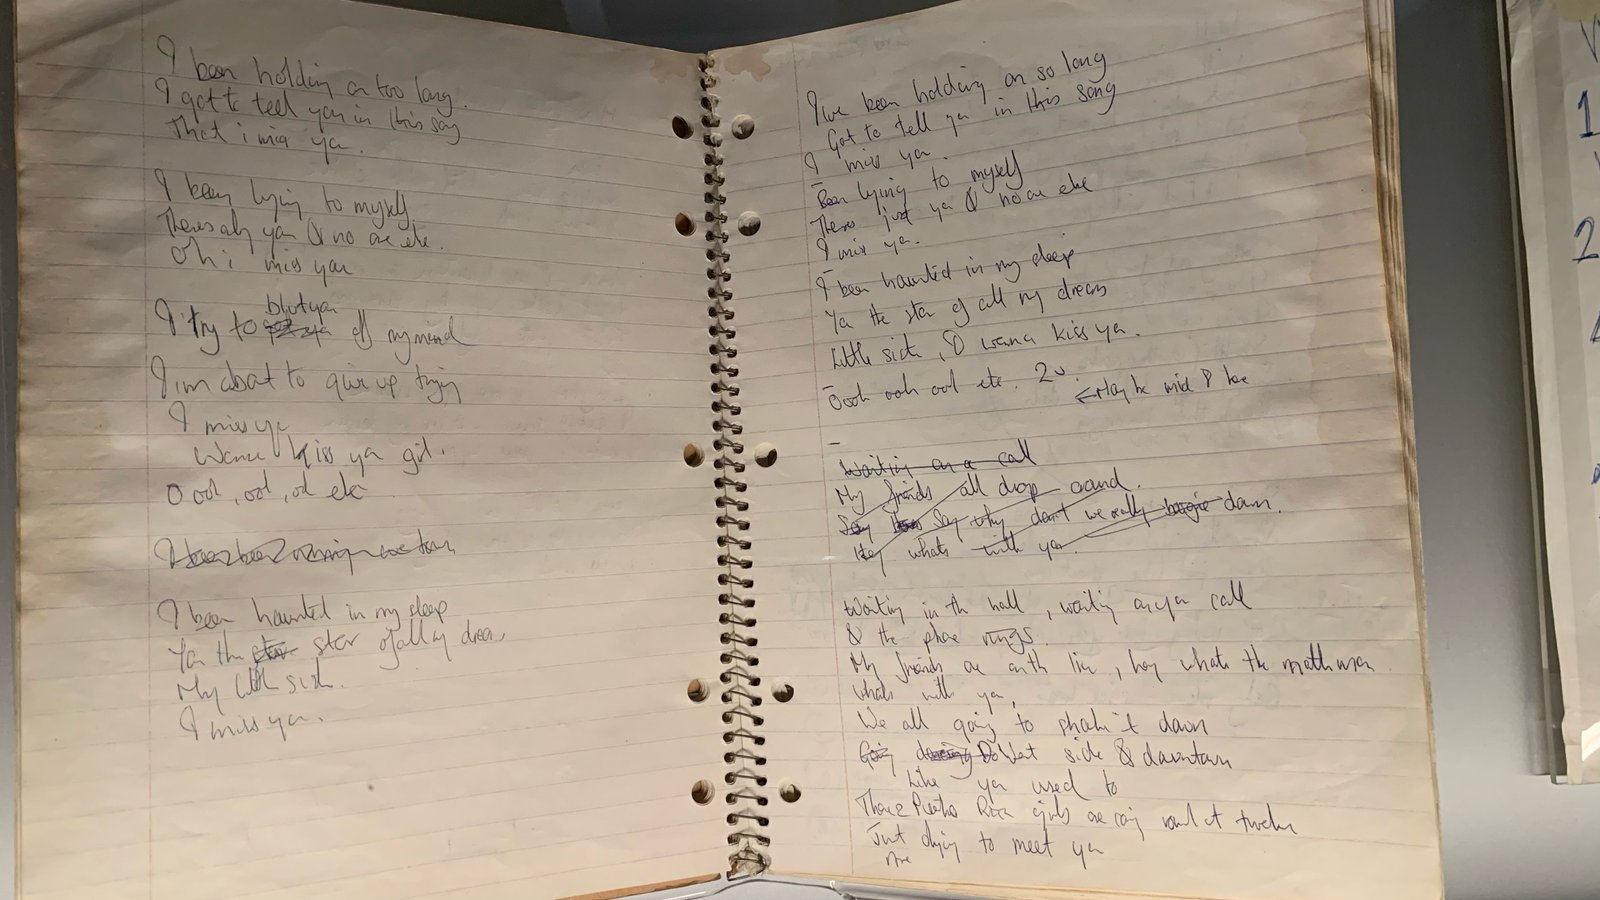 I been holding on too long.
I got to tell you in this song
That i miss ya.
I been lying to myself
Theres only you & no one else.
Oh i miss you
I try to blot you off my mind
I'm about to give up trying
I miss ya
Wanna kiss ya girl.
Oooh, ooh, ooh etc
I been haunted in my sleep
You the star star of all my dreams
My little sister.
I miss you.
I've been holding on so long
Got to tell ya in this song
I miss ya.
Been lying to myself
Theres just you & no one else
I miss ya.
I been haunted in my sleep
Ya the star of all my dreams
Little sister, I wanna kiss ya.
Oooh ooh ooh etc.
← Maybe mid 8 here
Waiting on a call
My friends all drop around.
Say Say why don't we really boogie down.
Hey whats with you.
Waiting in the hall, waiting on your call
& the phone rings.
My friends are on the line, hey whats the matter man
whats with ya,
We all going to shake it down
Going dancing West side & downtown
Like you used to
There's Puerto Rican girls are coming round at twelve
Just dying to meet you
1
2